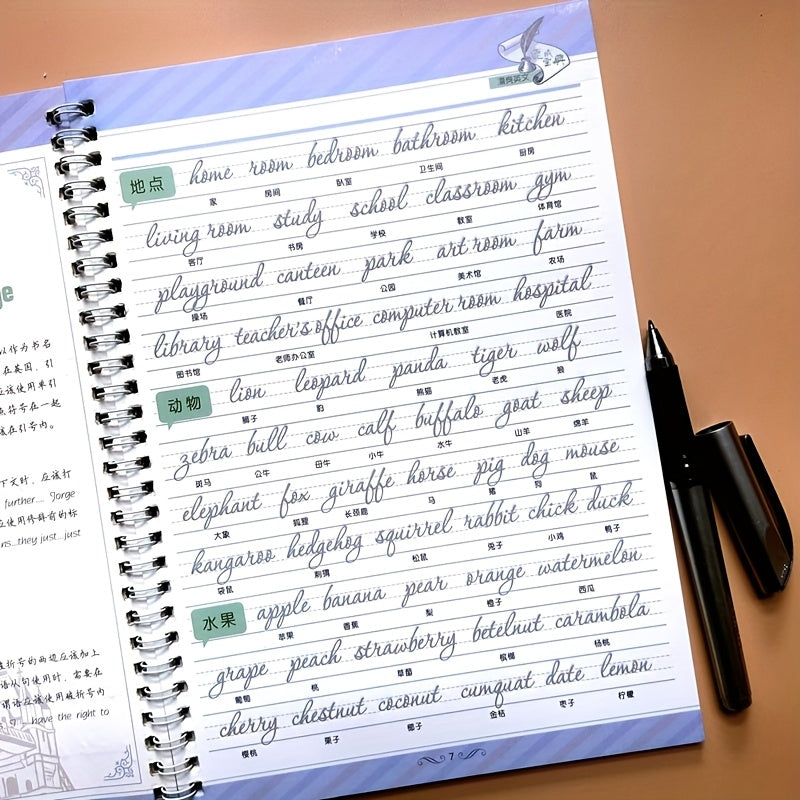 ge
以作为书名
在英国，引
应该使用单引
点符号在一起
该在引号内。
下文时，应该打
further... Jorge
应使用修辞前的标
ns...they just...just
破折号的两边应该加上
语从句使用时，需要在
谓语应该使用破折号内
have the right to
漂亮英文
宝典
home room bedroom bathroom kitchen
地点
家 房间 卧室 卫生间 厨房
living room study school classroom gym
客厅 书房 学校 教室 体育馆
playground canteen park art room farm
操场 餐厅 公园 美术馆 农场
library teacher's office computer room hospital
图书馆 老师办公室 计算机教室 医院
动物
lion leopard panda tiger wolf
狮子 豹 熊猫 老虎 狼
zebra bull cow calf buffalo goat sheep
斑马 公牛 母牛 小牛 水牛 山羊 绵羊
elephant fox giraffe horse pig dog mouse
大象 狐狸 长颈鹿 马 猪 狗 鼠
kangaroo hedgehog squirrel rabbit chick duck
袋鼠 刺猬 松鼠 兔子 小鸡 鸭子
水果
apple banana pear orange watermelon
苹果 香蕉 梨 橙子 西瓜
grape peach strawberry betelnut carambola
葡萄 桃 草莓 槟榔 杨桃
cherry chestnut coconut cumquat date lemon
樱桃 栗子 椰子 金桔 枣子 柠檬
7